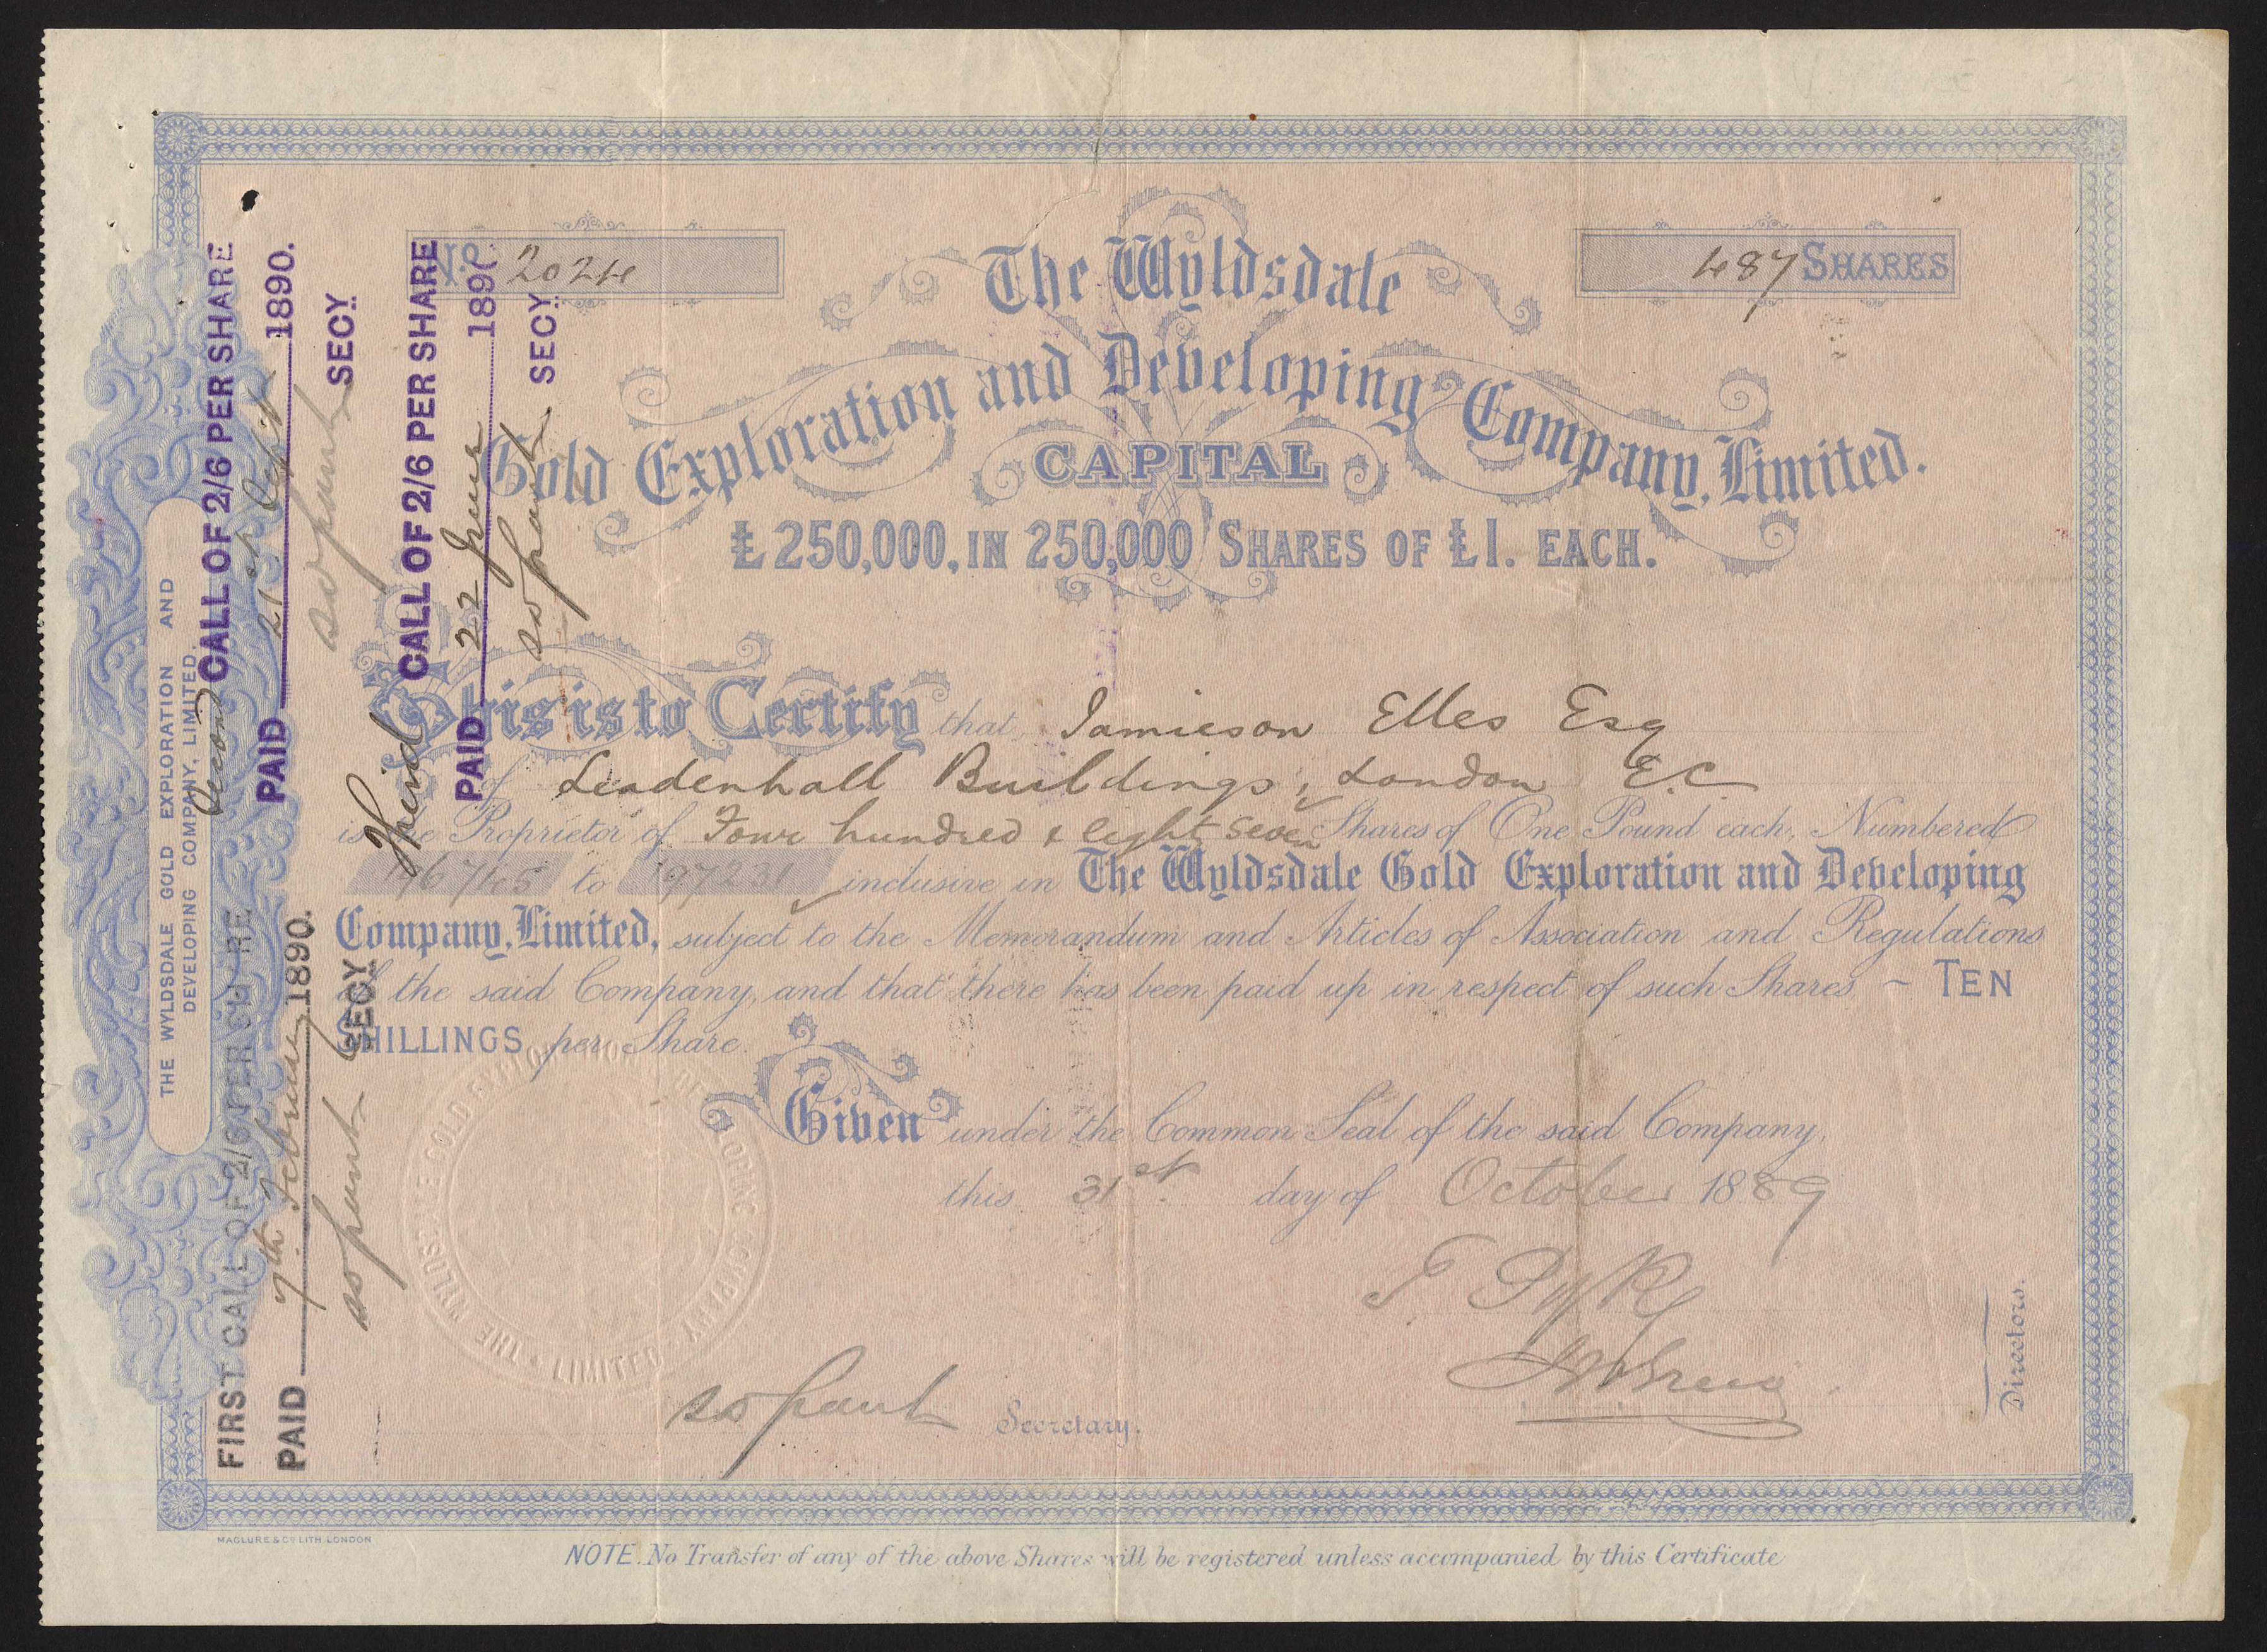 No. 2024
487 SHARES
The Wyldsdale
Gold Exploration and Developing Company, Limited.
CAPITAL
£250,000, IN 250,000 SHARES OF £1. EACH.
This is to Certify that Jamieson Elles Esq
of Leadenhall Buildings, London E.C.
is the Proprietor of Four hundred & eight seven Shares of One Pound each, Numbered
196745 to 197231 inclusive in The Wyldsdale Gold Exploration and Developing
Company, Limited, subject to the Memorandum and Articles of Association and Regulations
of the said Company, and that there has been paid up in respect of such Shares – TEN
SHILLINGS per Share.
Given under the Common Seal of the said Company,
this 31st day of October 1889
Directors.
Secretary.
THE WYLDSDALE GOLD EXPLORATION AND
DEVELOPING COMPANY, LIMITED.
FIRST CALL OF 2/6 PER SHARE
PAID 7th February 1890.
SECY
Second CALL OF 2/6 PER SHARE
PAID 21st 1890.
SECY.
Third CALL OF 2/6 PER SHARE
PAID 22 June 1890
SECY.
THE WYLDSDALE GOLD EXPLORATION AND DEVELOPING COMPANY LIMITED
MACLURE & Co LITH. LONDON
NOTE. No Transfer of any of the above Shares will be registered unless accompanied by this Certificate